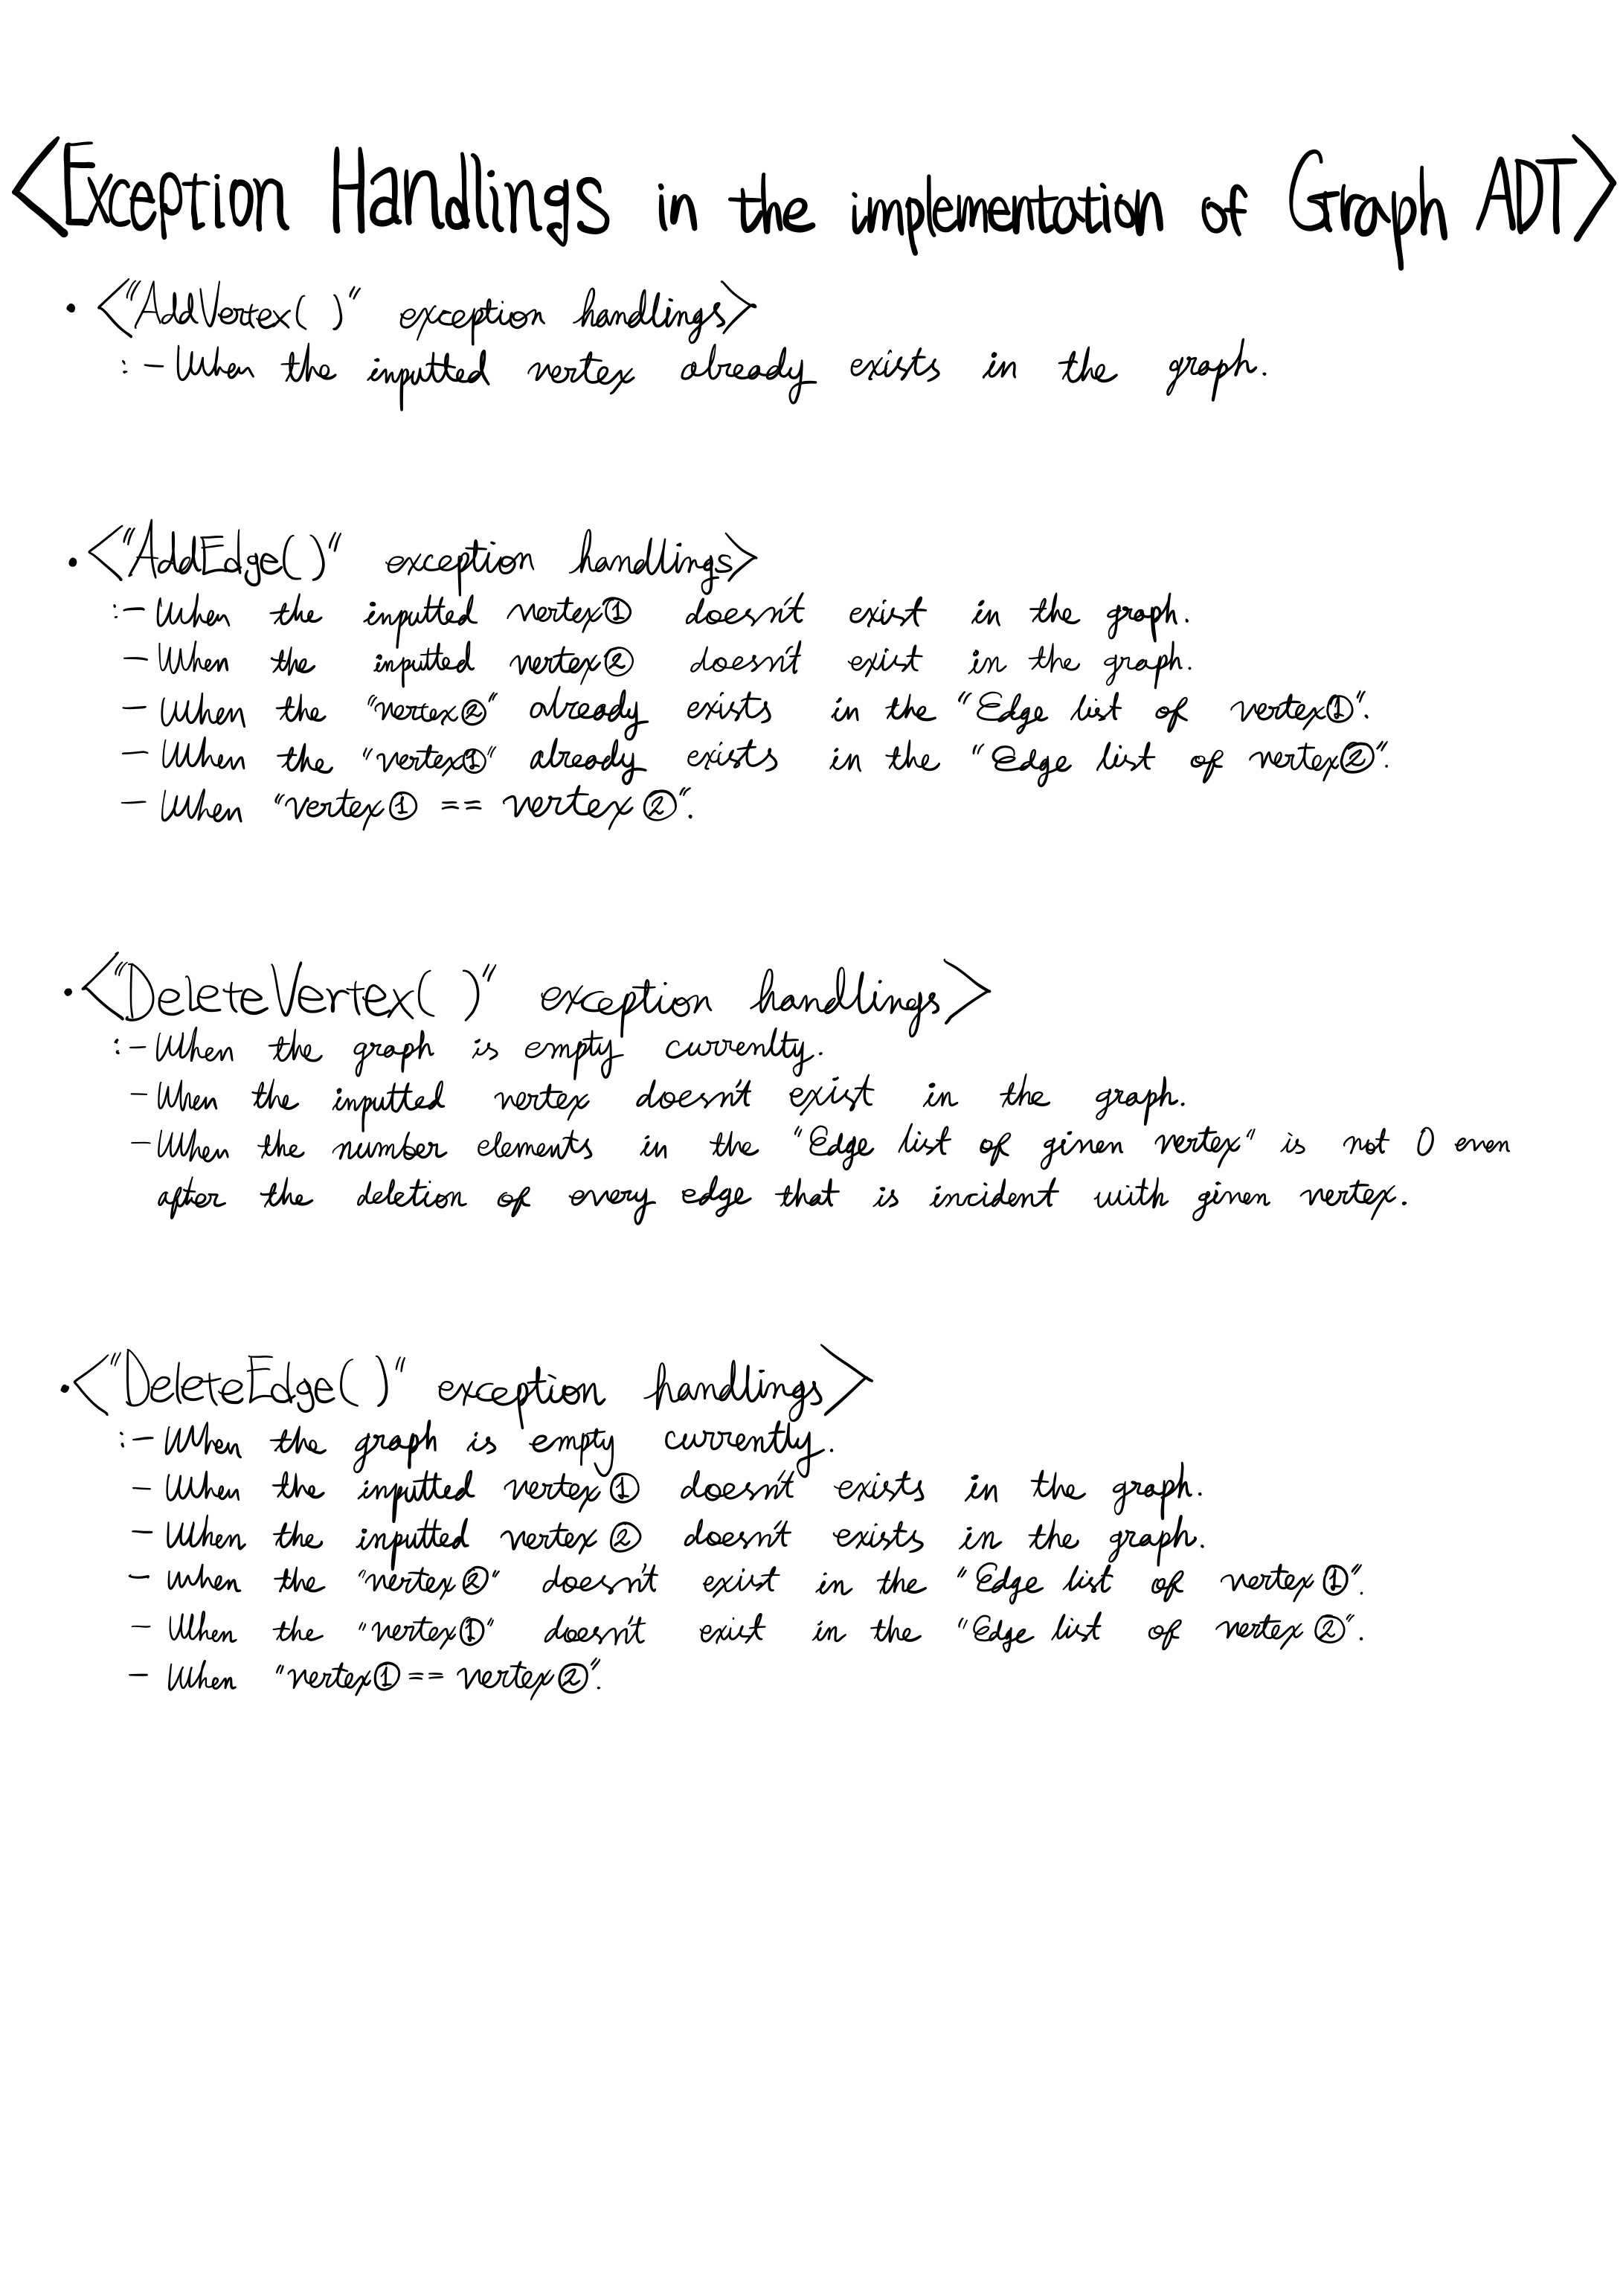 <Exception Handlings in the implementation of Graph ADT>
• <"AddVertex( )" exception handlings>
: - When the inputted vertex already exists in the graph.
• <"AddEdge( )" exception handlings>
: - When the inputted vertex① doesn't exist in the graph.
- When the inputted vertex② doesn't exist in the graph.
- When the "vertex②" already exists in the "Edge list of vertex①".
- When the "vertex①" already exists in the "Edge list of vertex②".
- When "vertex① == vertex②".
• <"DeleteVertex( )" exception handlings>
: - When the graph is empty currenlty.
- When the inputted vertex doesn't exist in the graph.
- When the number elements in the "Edge list of given vertex" is not 0 even
after the deletion of every edge that is incident with given vertex.
• <"DeleteEdge( )" exception handlings>
: - When the graph is empty currently.
- When the inputted vertex① doesn't exists in the graph.
- When the inputted vertex② doesn't exists in the graph.
- When the "vertex②" doesn't exist in the "Edge list of vertex①".
- When the "vertex①" doesn't exist in the "Edge list of vertex②".
- When "vertex① == vertex②".